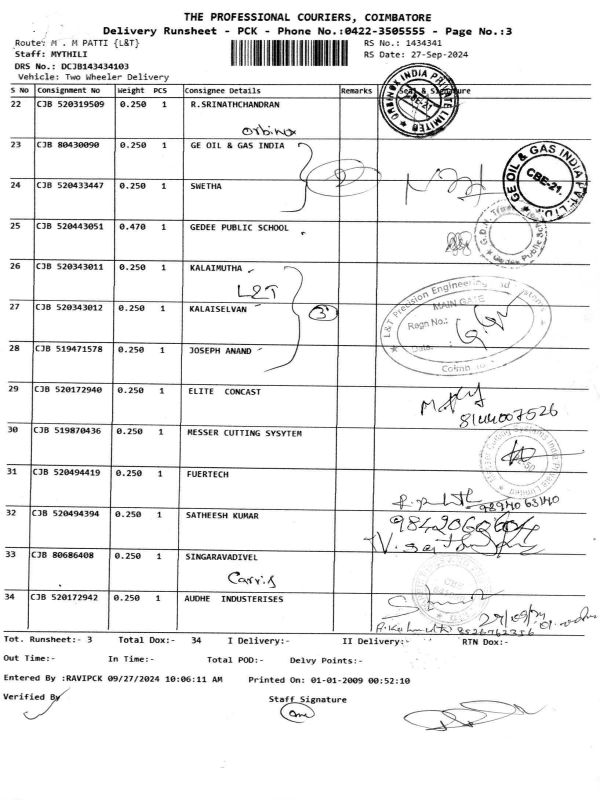 THE PROFESSIONAL COURIERS, COIMBATORE
Delivery Runsheet - PCK - Phone No.:0422-3505555 - Page No.:3
Route: M . M PATTI {L&T} RS No.: 1434341
Staff: MYTHILI RS Date: 27-Sep-2024
DRS No.: DCJB143434103
Vehicle: Two Wheeler Delivery
S No Consignment No Weight PCS Consignee Details Remarks Seal & Signature
22 CJB 520319509 0.250 1 R.SRINATHCHANDRAN
Orbinox
ORBINOX INDIA PRIVATE LIMITED
CBE-21
23 CJB 80430090 0.250 1 GE OIL & GAS INDIA
2
GE OIL & GAS INDIA PVT. LTD.
CBE-21.
24 CJB 520433447 0.250 1 SWETHA
25 CJB 520443051 0.470 1 GEDEE PUBLIC SCHOOL
26 CJB 520343011 0.250 1 KALAIMUTHA
L&T
L&T Precision Engineering and Systems
MAIN GATE
Regn No.:
Date:
27 CJB 520343012 0.250 1 KALAISELVAN
3
28 CJB 519471578 0.250 1 JOSEPH ANAND
29 CJB 520172940 0.250 1 ELITE CONCAST
8144007526
30 CJB 519870436 0.250 1 MESSER CUTTING SYSYTEM
31 CJB 520494419 0.250 1 FUERTECH
9894063140
32 CJB 520494394 0.250 1 SATHEESH KUMAR
33 CJB 80686408 0.250 1 SINGARAVADIVEL
34 CJB 520172942 0.250 1 AUDHE INDUSTERISES
Tot. Runsheet:- 3 Total Dox:- 34 I Delivery:- II Delivery:- RTN Dox:-
Out Time:- In Time:- Total POD:- Delvy Points:-
Entered By :RAVIPCK 09/27/2024 10:06:11 AM Printed On: 01-01-2009 00:52:10
Verified By Staff Signature